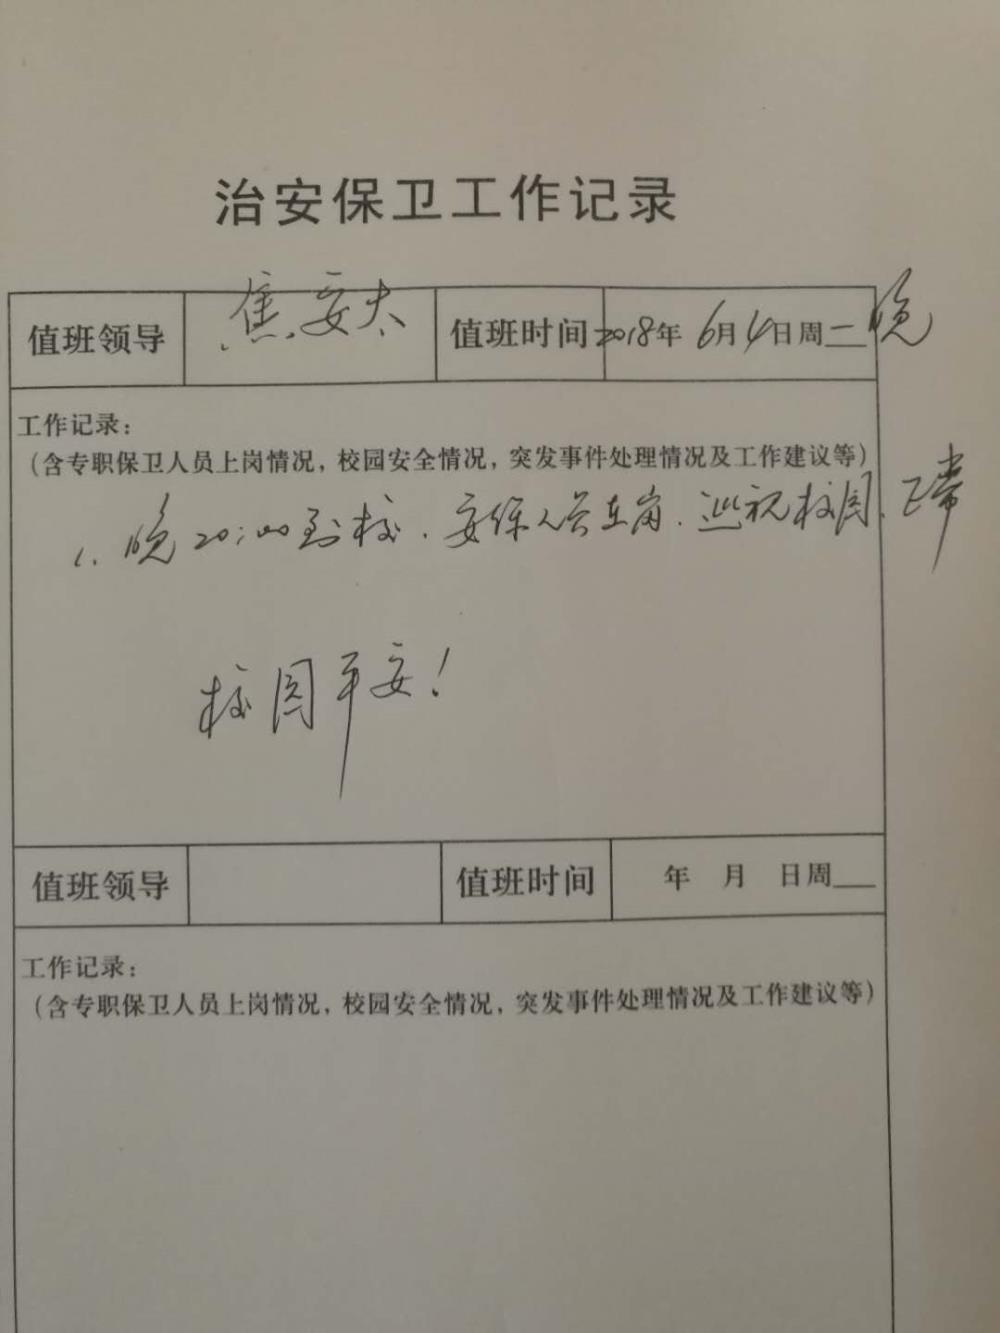 治安保卫工作记录
值班领导 焦安夫 值班时间 2018年 6月4日周一 晚
工作记录：
（含专职保卫人员上岗情况，校园安全情况，突发事件处理情况及工作建议等）
1. 晚20:00到校．安保人员在岗．巡视校园．正常
校园平安！
值班领导 值班时间 年 月 日周
工作记录：
（含专职保卫人员上岗情况，校园安全情况，突发事件处理情况及工作建议等）